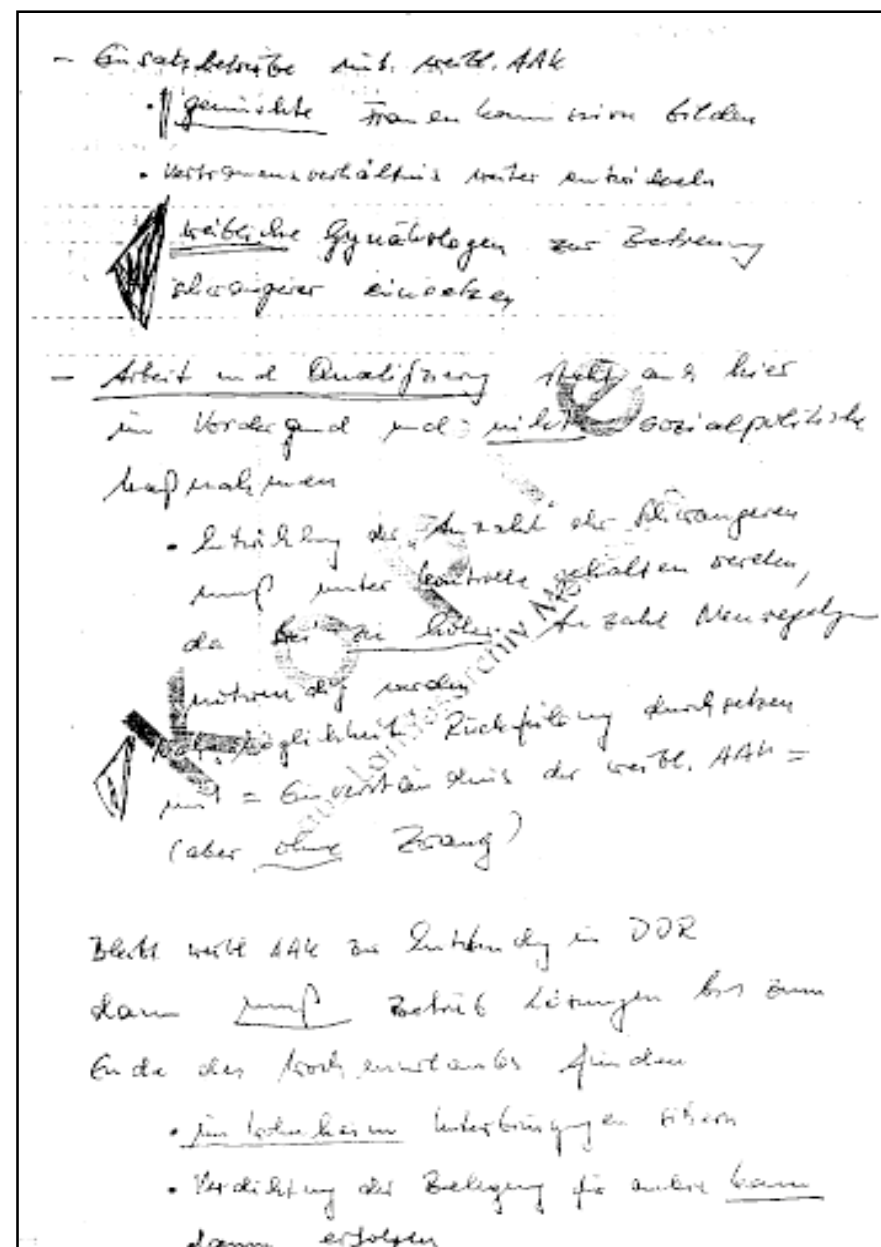 - Einsatzbetriebe mit weibl. AAK
• gemischte Frauenkommission bilden
• Vertrauensverhältnis weiter entwickeln
weibliche Gynäkologen zur Betreuung
schwangerer einsetzen
- Arbeit und Qualifizierung steht auch hier
im Vordergrund und nicht sozialpolitische
Maßnahmen
• Entwicklung der "Anzahl" der Schwangeren
muß unter Kontrolle gehalten werden,
da bei zu hoher Anzahl Neuregelungen
notwendig werden
nach Möglichkeit Rückführung durchsetzen
mit = Einverständnis der weibl. AAK =
(aber ohne Zwang)
Bleibt weibl AAK zur Entbindung in DDR
dann muß Betrieb Lösungen bis zum
Ende des Wochenurlaubs finden
• im Wohnheim Unterbringungen sichern
• Verdichtung der Belegung für andere kann
dann erfolgen